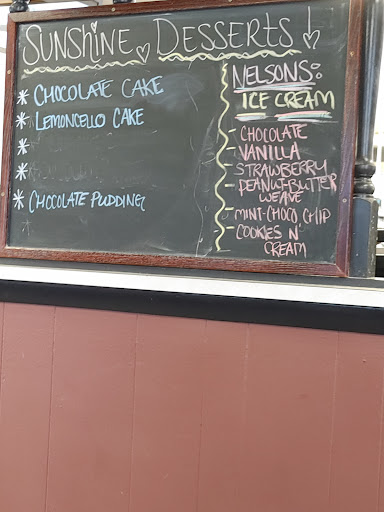 SUNSHINE DESSERTS
* CHOCOLATE CAKE
* LEMONCELLO CAKE
*
*
* CHOCOLATE PUDDING
NELSONS:
ICE CREAM
- CHOCOLATE
- VANILLA
- STRAWBERRY
- PEANUT-BUTTER
WEAVE
- MINT-CHOCO CHIP
- COOKIES N'
CREAM